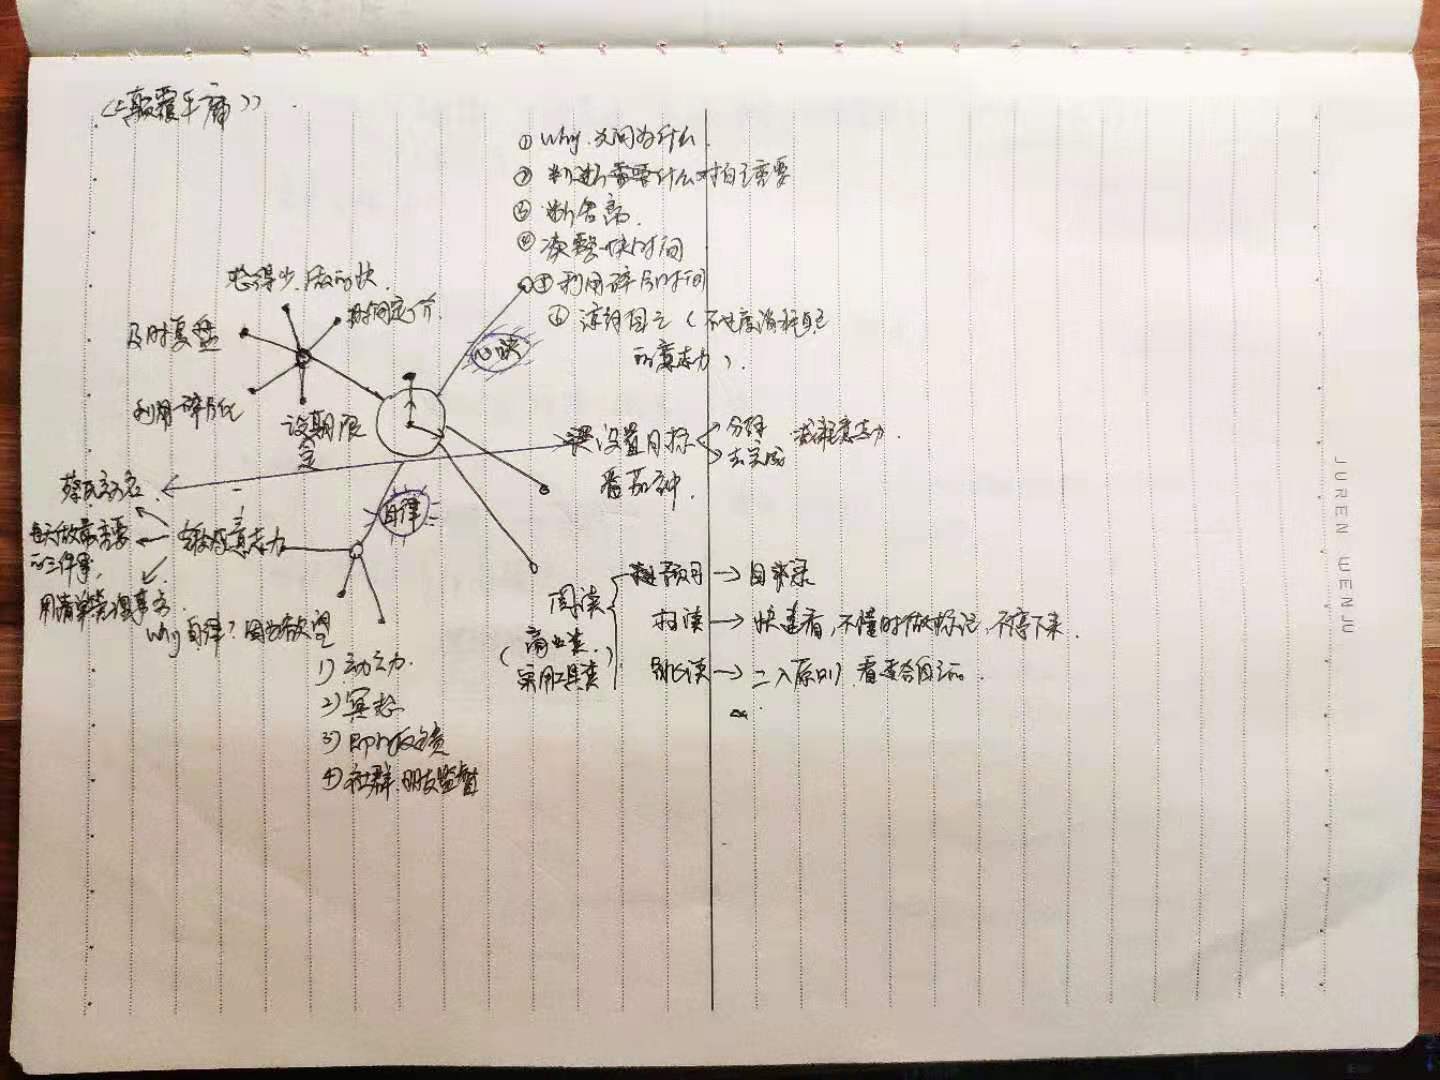 《颠覆平庸》
① Why. 先问为什么
② 判断需要什么 对自己需要
③ 断舍离.
④ 读整块时间
⑤ 利用碎片时间
⑥ 自己(不过度消耗自己
的意志力).
心诀
想得少.做的快.
时间定价.
及时复盘
利用碎片化
设期限
定
设置目标
分解
去完成
减耗意志力.
番茄钟.
自律
锻炼意志力
每天做最重要
的三件事,
用清单管理事务.
Why 自律? 因为欲望
1) 动力.
2) 冥想
3) 即时反馈
4) 社群.朋友监督
阅读
(商业类.
实用工具类)
预习 → 目录
扫读 → 快速看,不懂时做标记,不停下来.
跳读 → 二八原则 看适合自己的.
JUREN WENJU